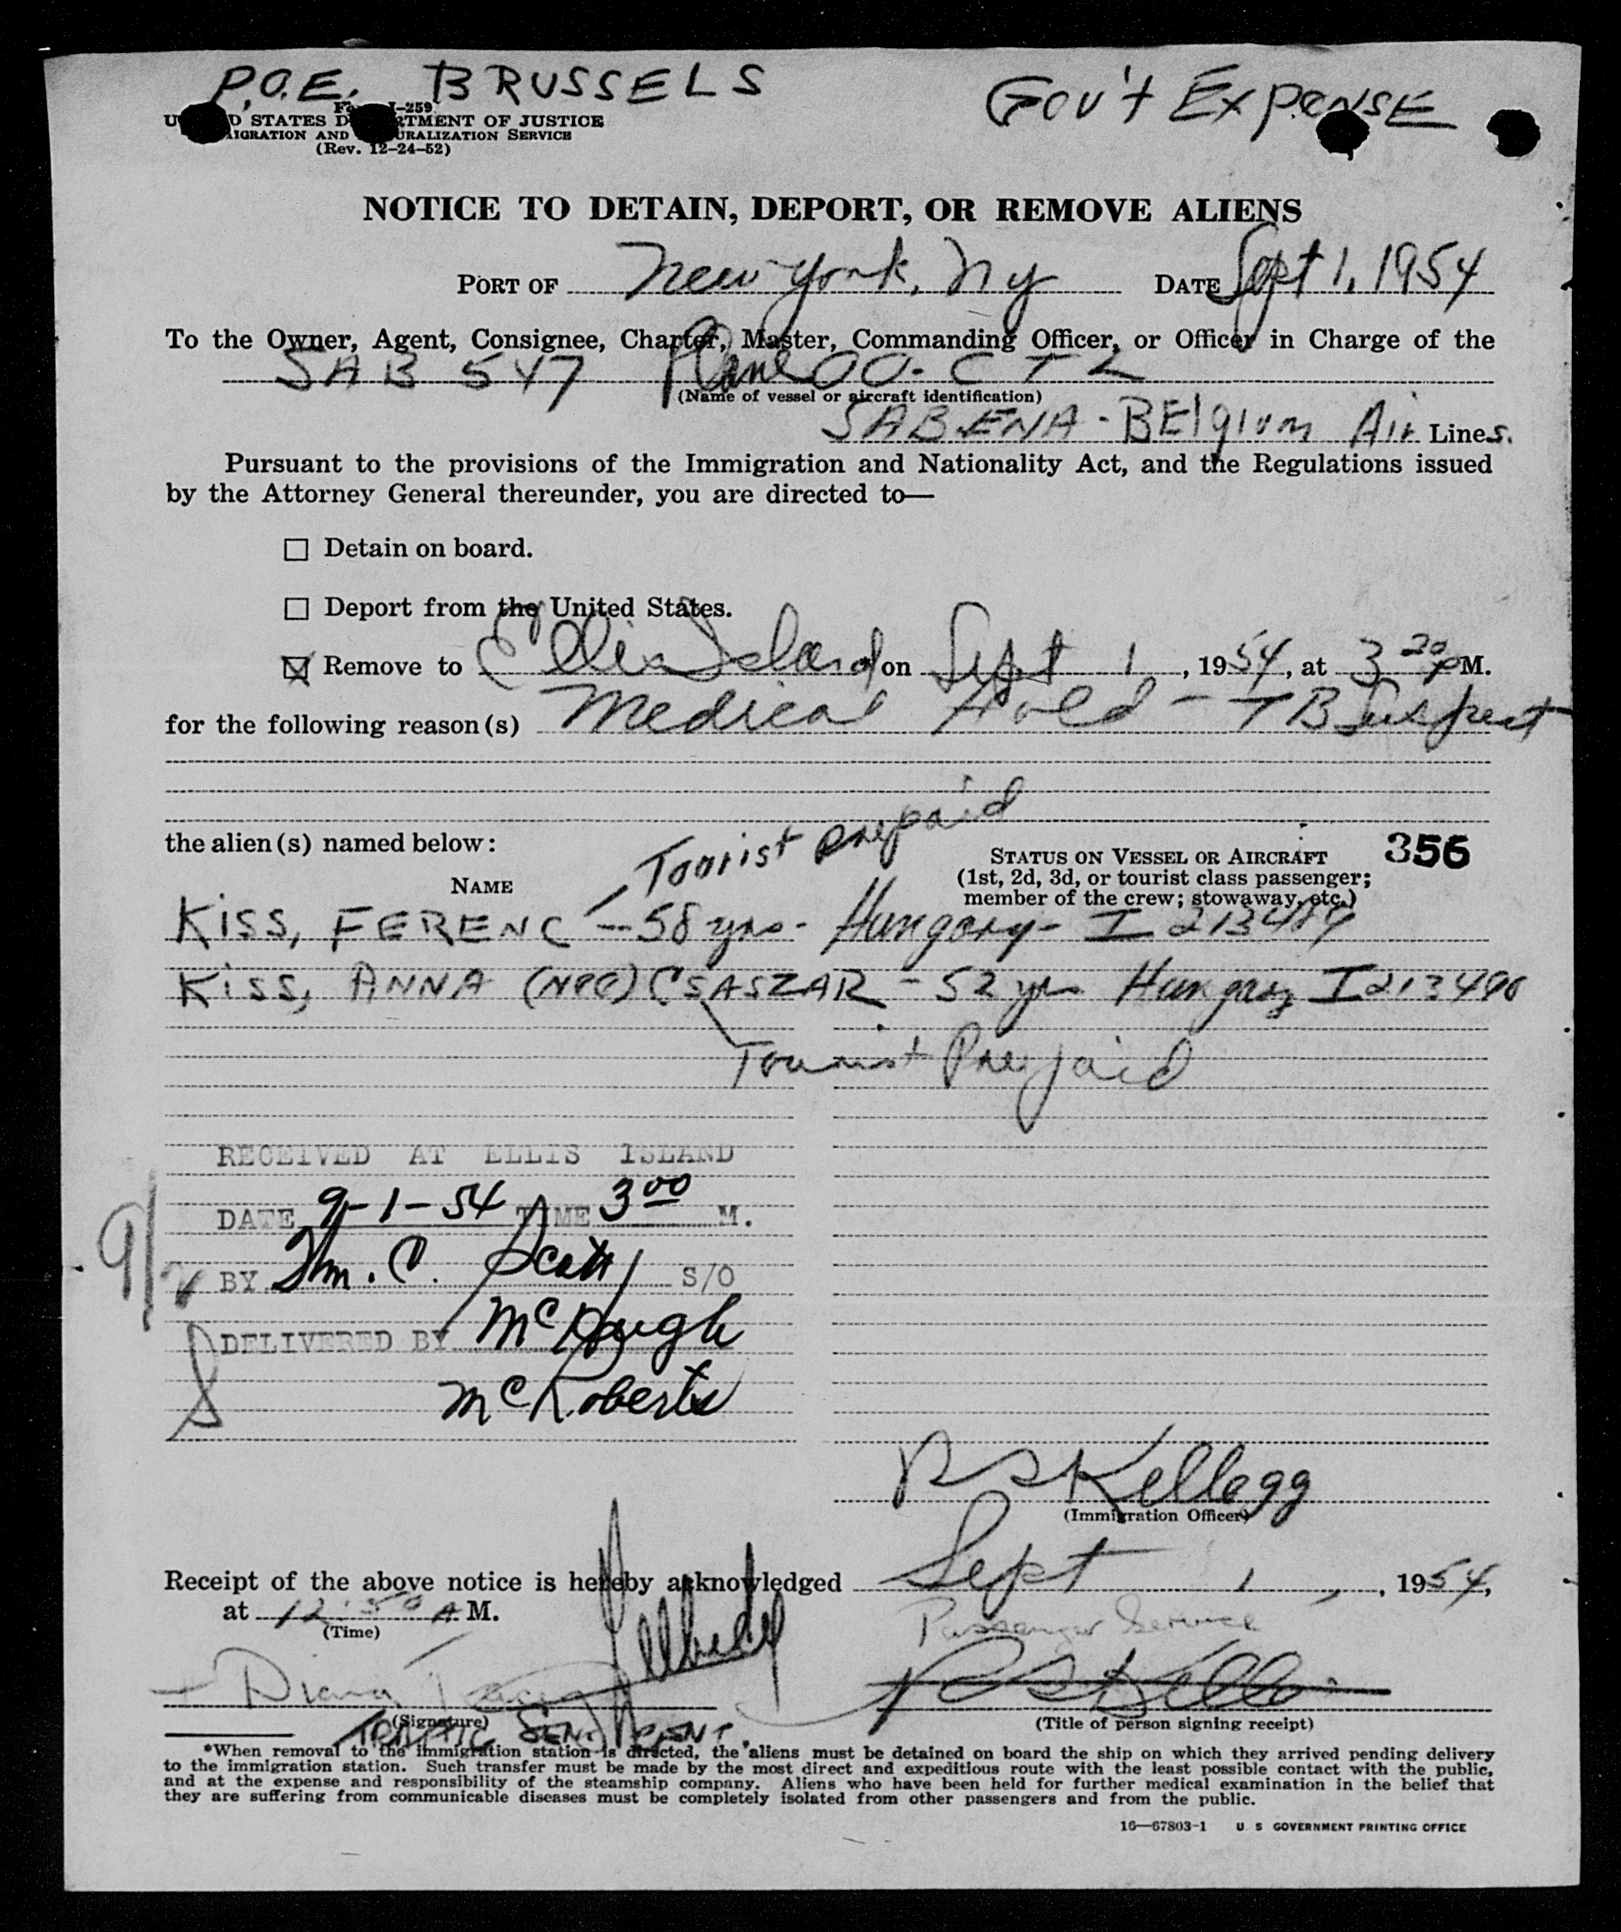 P.O.E. BRUSSELS
Gov't Expense
I-259
STATES DEPARTMENT OF JUSTICE
IGRATION AND NATURALIZATION SERVICE
(Rev. 12-24-52)
NOTICE TO DETAIN, DEPORT, OR REMOVE ALIENS
PORT OF New York, Ny DATE Sept 1, 1954
To the Owner, Agent, Consignee, Charter, Master, Commanding Officer, or Officer in Charge of the
SAB 547 Plane OO-CTL
(Name of vessel or aircraft identification)
SABENA - BElgium Air Lines.
Pursuant to the provisions of the Immigration and Nationality Act, and the Regulations issued
by the Attorney General thereunder, you are directed to—
☐ Detain on board.
☐ Deport from the United States.
☒ Remove to Ellis Island on Sept 1, 1954, at 3 20 P M.
for the following reason(s) Medical Hold - TB Suspect
the alien(s) named below:
Tourist prepaid
STATUS ON VESSEL OR AIRCRAFT 356
(1st, 2d, 3d, or tourist class passenger;
NAME
member of the crew; stowaway, etc.)
KISS, FERENC - 58 yrs. Hungary - I 213489
KISS, ANNA (nee) CSASZAR - 52 yrs Hungary I 213490
Tourist Prepaid
RECEIVED AT ELLIS ISLAND
DATE 9-1-54 TIME 3 00 M.
9/2
BY Wm. C. Scott S/O
DELIVERED BY McHugh
McRoberts
R S Kellogg
(Immigration Officer)
Receipt of the above notice is hereby acknowledged Sept 1, 1954,
at 12:50 A M.
(Time)
Passenger Service
Diana
(Signature)
TRAFFIC SENT AGENT
(Title of person signing receipt)
*When removal to the immigration station is directed, the aliens must be detained on board the ship on which they arrived pending delivery
to the immigration station. Such transfer must be made by the most direct and expeditious route with the least possible contact with the public,
and at the expense and responsibility of the steamship company. Aliens who have been held for further medical examination in the belief that
they are suffering from communicable diseases must be completely isolated from other passengers and from the public.
16—67803-1 U S GOVERNMENT PRINTING OFFICE